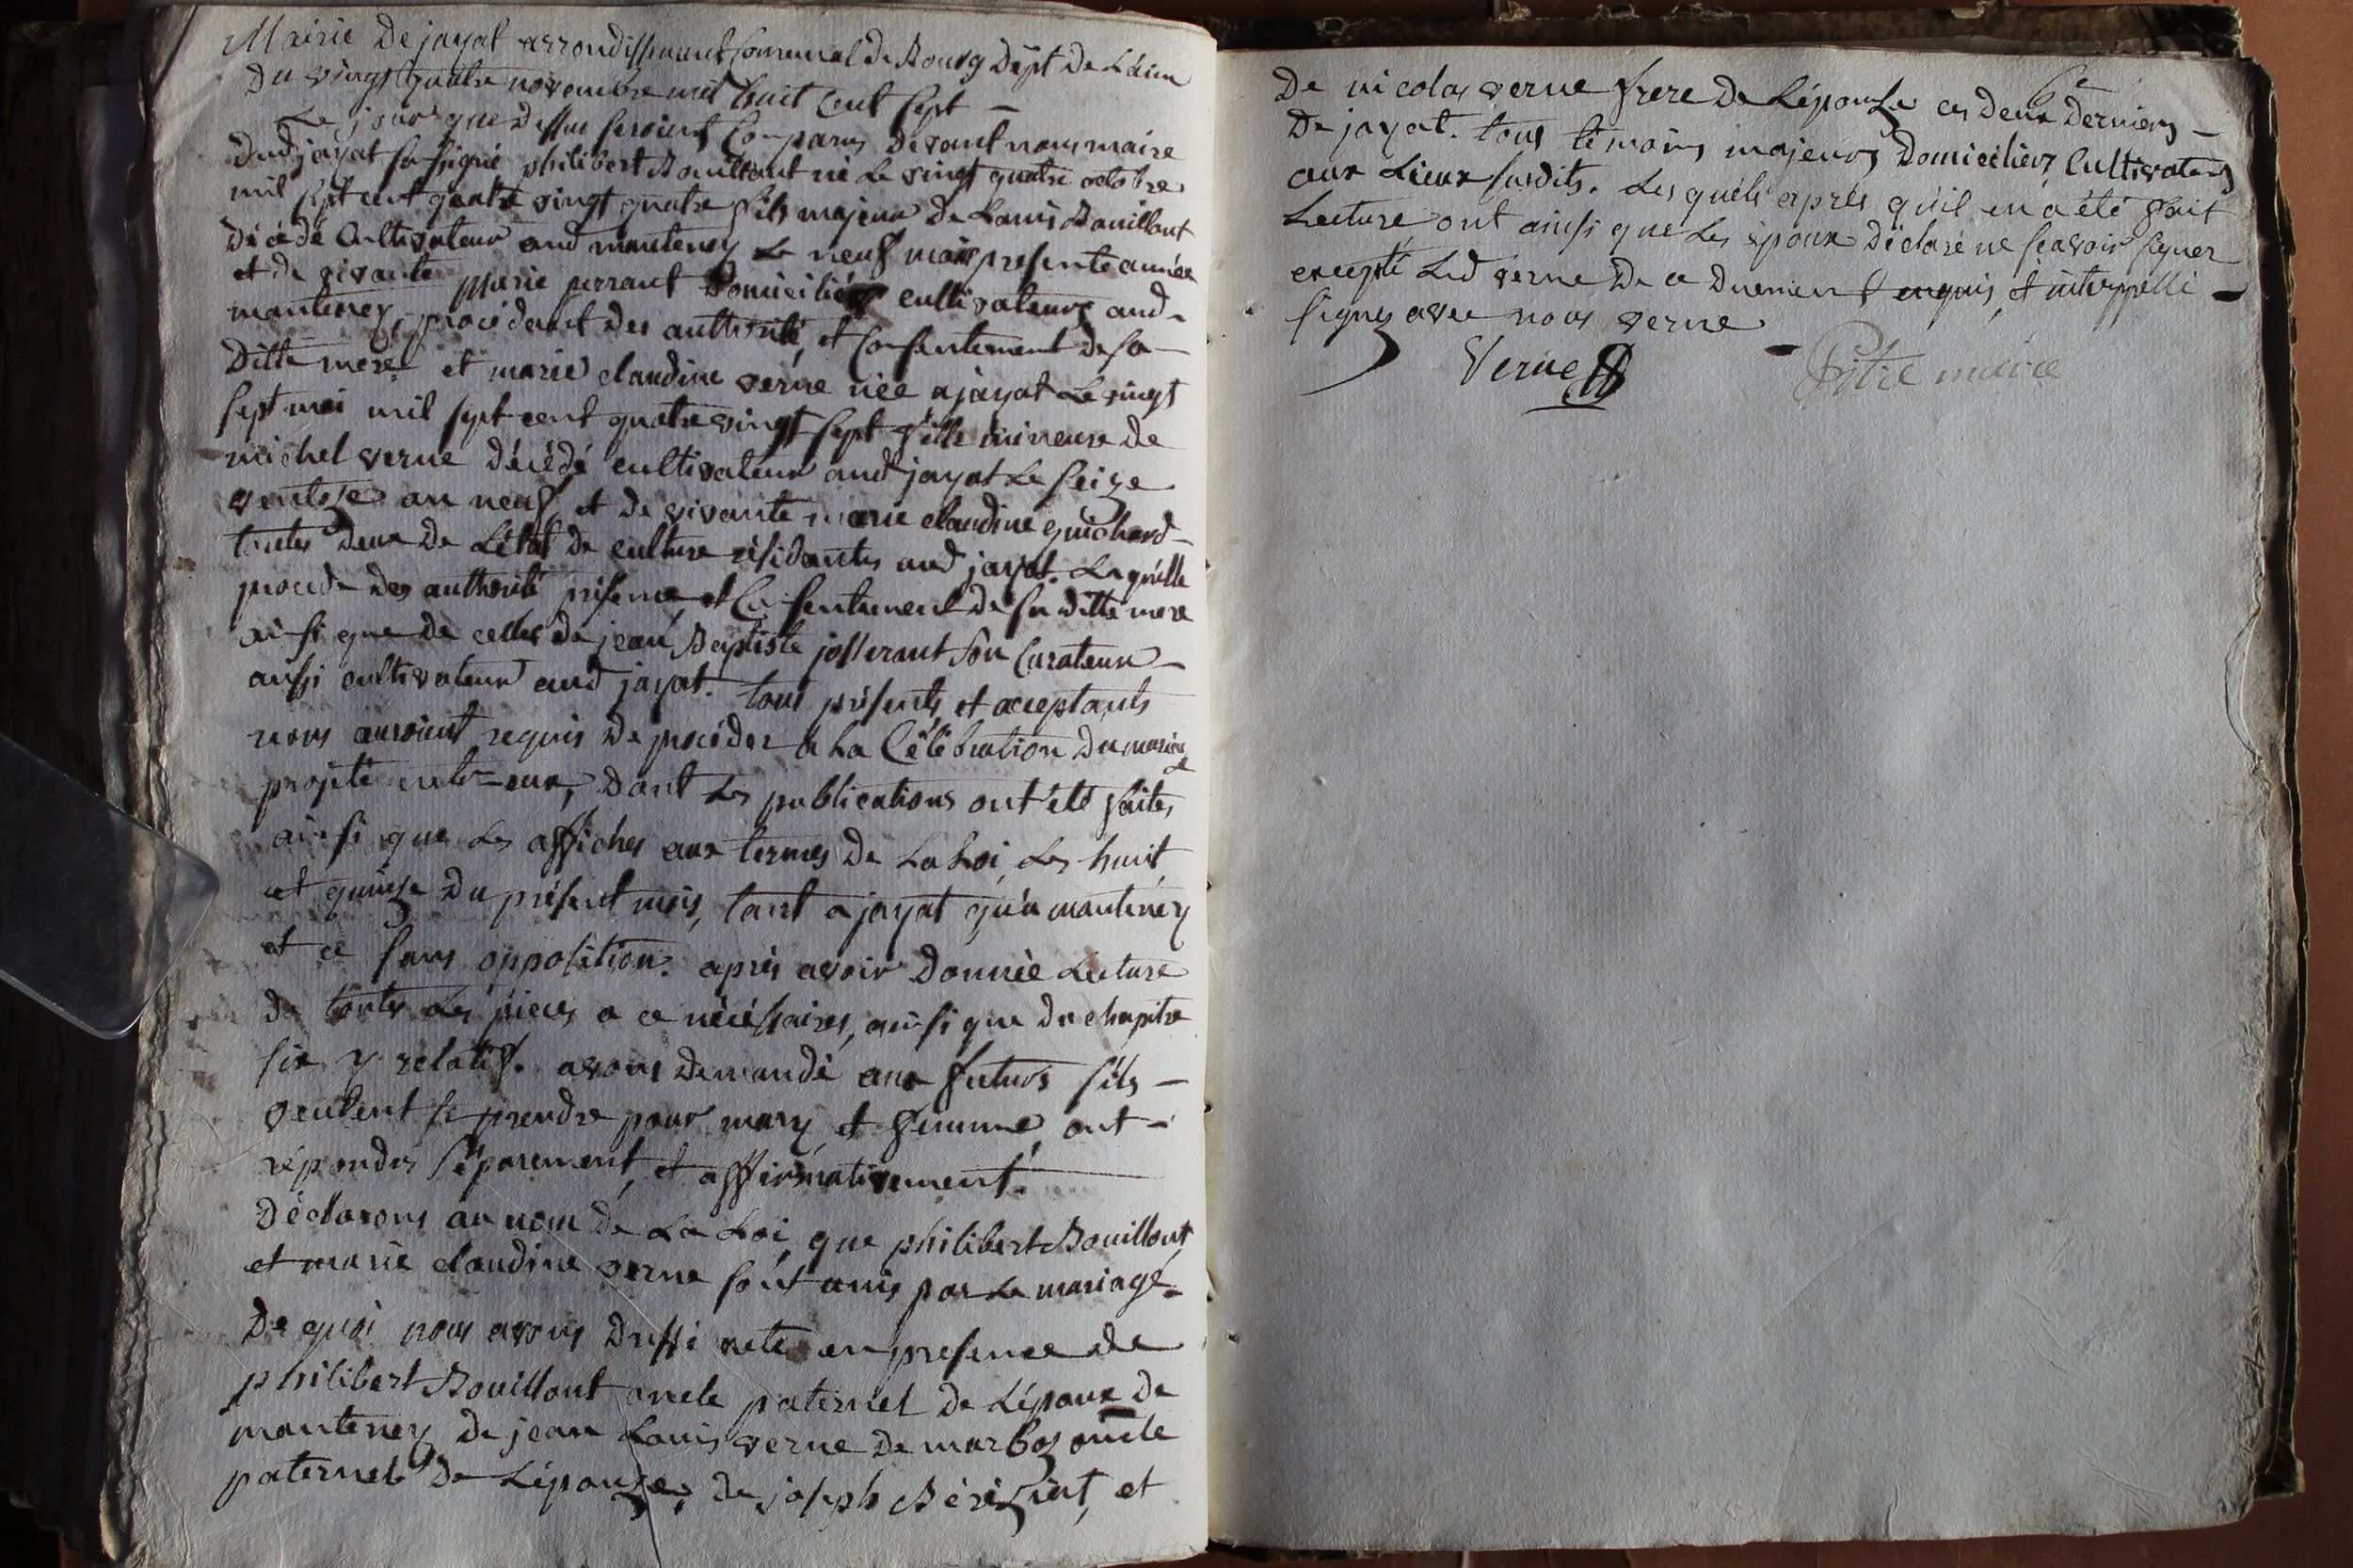 Mairie De jayat arrondissement Communal de Bourg Dépt De L'ain
Du vingt quatre novembre mil huit cent sept —
Le jour que dessus seroient Comparus devant nous maire
dud jayat soussigné philibert Bouillout né Le vingt quatre octobre
mil sept cent quatre vingt quatre fils majeur de Louis Bouillout
décédé Cultivateur aud mantenay Le neuf mars presente année
et de vivante Marie perraut Domiciliée cultivateurs aud
mantenay, procédant des authorité, et Consentement de sa —
Ditte mere et marie claudine verne née a jayat Le vingt
sept mai mil sept cent quatre vingt sept fille mineure de
michel verne décédé cultivateur aud jayat Le seize
ventose an neuf, et de vivante marie claudine guichard —
toutes deux de L'état de culture résidantes aud jayat. Laquelle
procede des authorité présence, et Consentement de sa ditte mere
ainsi que de celles de jean Baptiste josserant son Curateur —
aussi cultivateur aud jayat. tous présents, et acceptants
nous auroient requis de procéder a La Célébration du mariage
projeté entr=eux, dont Les publications ont été faites,
ainsi que Les affiches aux termes de La Loi, Les huit,
et quinze du présent mois, tant a jayat qu'a mantenay
et ce sans opposition. après avoir donnée Lecture
de toutes Les pieces a ce nécéssaires, ainsi que du chapitre
six y relatif. avons demandé aux futurs s'ils —
veulent se prendre pour mary, et femme, ont —
répondus séparement, et affirmativement.
Déclarons au nom de La Loi, que philibert Bouillout,
et marie claudine verne sont unis par Le mariage.
De quoi nous avons dressé acte en presence de
philibert Bouillout oncle paternel de L'époux de
mantenay de jean Louis verne de marboz oncle
paternel de L'épouse, de joseph Bériziat, et
6e
De nicolas verne frere De L'épouse ces deux derniers —
De jayat. tous témoins majeurs Domiciliés, Cultivateurs
aux Lieux susdits. Lesquels après qu'il en a été fait
Lecture ont ainsi que Les époux déclaré ne sçavoir signer
excepté Led verne de ce duement enquis, et interpellé —
signés avec nous verne
Verne — Pitre maire